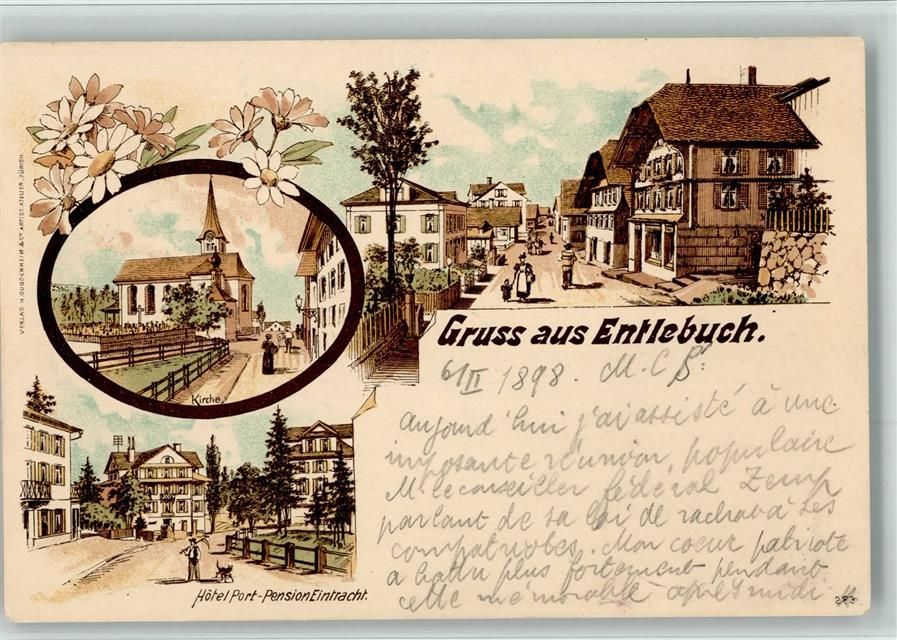 VERLAG H. GUGGENHEIM & Co ARTIST. ATELIER, ZÜRICH
Kirche.
Hôtel Port-Pension Eintracht.
Gruss aus Entlebuch.
6/II 1898. M. C
Aujourd'hui j'ai assisté à une
imposante réunion populaire
M. le conseiller fédéral Zemp
parlant de sa loi de rachat à ses
compatriotes. Mon coeur patriote
a battu plus fortement pendant
cette mémorable après midi